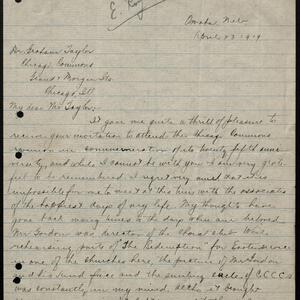 E. Roy
Omaha Neb
April 23 1919
Dr. Graham Taylor
Chicago Commons
Grand & Morgan Sts.
Chicago, Ill
My dear Mr Taylor:-
It gave me quite a thrill of pleasure to
receive your invitation to attend the Chicago Commons
reunion in commemoration of its twenty fifth anni-
versity, and while I cannot be with you I am very grate-
ful to be remembered. I regret very much that it is
impossible for me to meet at this time with the associates
of the happiest days of my life. My thoughts have
gone back many times to the days when our beloved
Mr. Gordon was director of the Choral club. While
rehearsing parts of "The Redemption" for Easter service
in one of the churches here, the picture of Mr Gordon
and his kind face and the smiling circle of C.C.C.C's
was constantly in my mind,